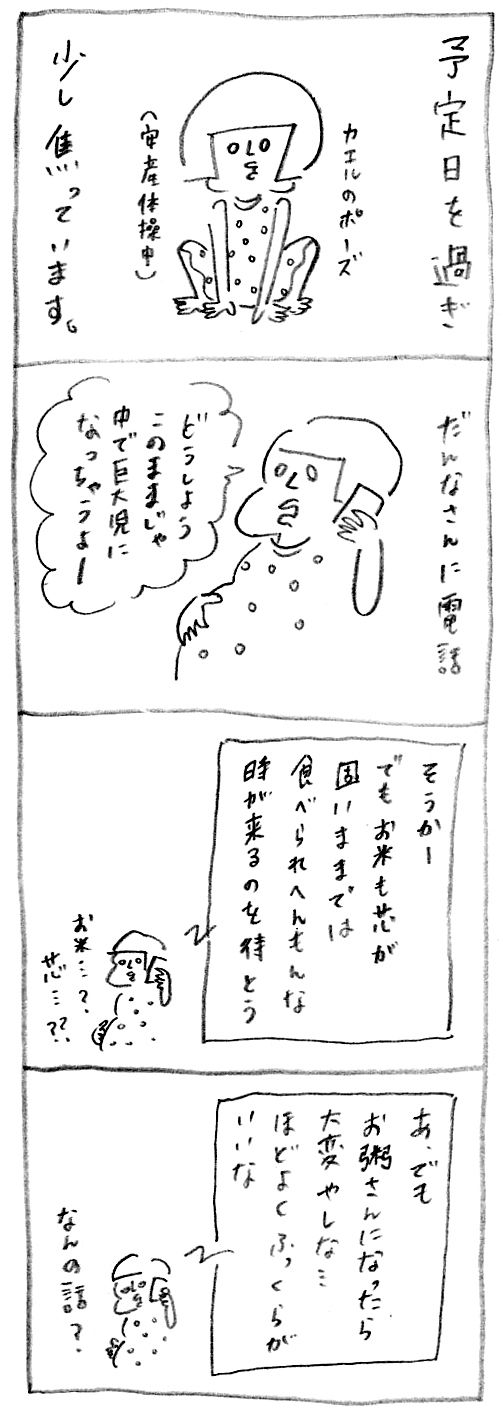 予定日を過ぎ
カエルのポーズ
（安産体操中）
少し焦っています。
だんなさんに電話
どうしよう
このままじゃ
中で巨大児に
なっちゃうよー
そうかー
でもお米も芯が
固いままでは
食べられへんもんな
時が来るのを待とう
お米…？
芯…？？
あ、でも
お粥さんになったら
大変やしな…
ほどよくふっくらが
いいな
なんの話？